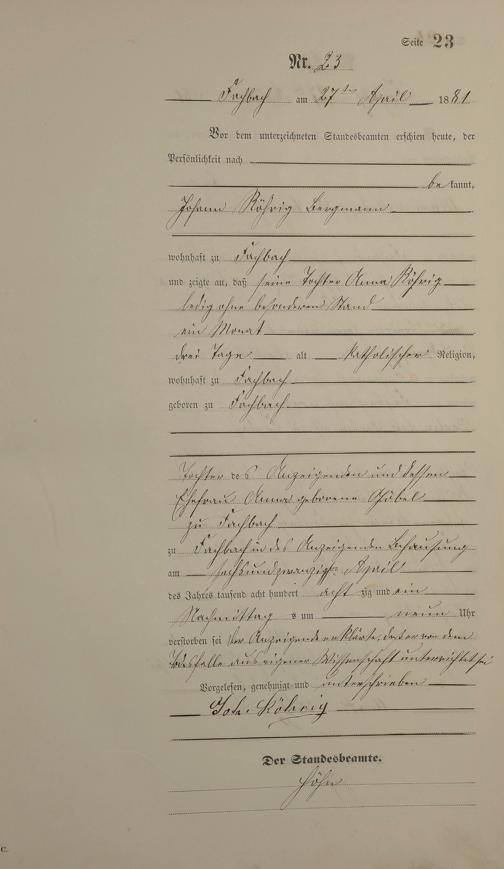 Seite 23
Nr. 23
Fachbach am 27ten April 1881
Vor dem unterzeichneten Standesbeamten erschien heute, der
Persönlichkeit nach
be kannt,
Johann Röhrig Bergmann
wohnhaft zu Fachbach
und zeigte an, daß seine Tochter Anna Röhrig
ledig ohne besonderen Stand
ein Monat
drei Tage alt katholischer Religion,
wohnhaft zu Fachbach
geboren zu Fachbach
Tochter des Anzeigenden und dessen
Ehefrau Anna geborene Göbel
zu Fachbach
zu Fachbach in des Anzeigenden Behausung
am sechsundzwanzigsten April
des Jahres tausend acht hundert acht zig und ein
Nachmittags um neun Uhr
verstorben sei der Anzeigende erklärte, daß er von dem
Todesfalle aus eigener Wissenschaft unterrichtet sei
Vorgelesen, genehmigt und unterschrieben
Joh. Röhrig
Der Standesbeamte.
Höhn
C.